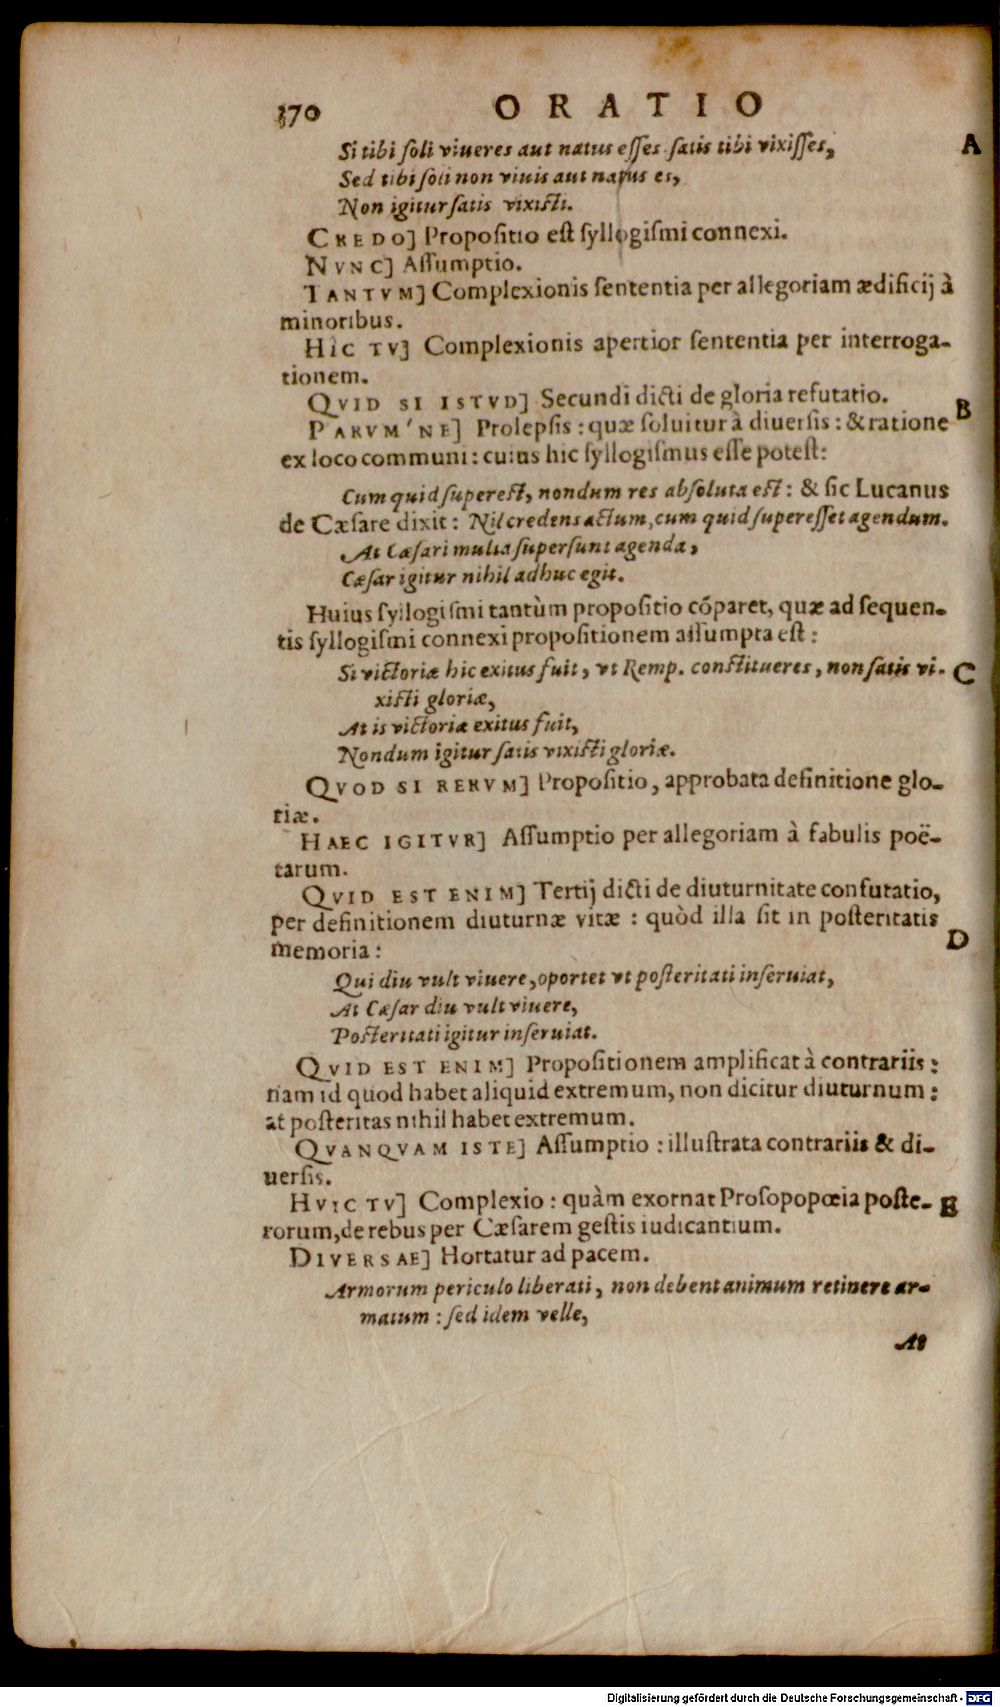 370 ORATIO
Si tibi soli viueres aut natus esses satis tibi vixisses, A
Sed tibi soli non viuis aut natus es,
Non igitur satis vixisti.
CREDO] Propositio est syllogismi connexi.
NVNC] Assumptio.
TANTVM] Complexionis sententia per allegoriam ædificij à
minoribus.
HIC TV] Complexionis apertior sententia per interroga-
tionem.
QVID SI ISTVD] Secundi dicti de gloria refutatio.
PARVM'NE] Prolepsis: quæ soluitur à diuersis: & ratione B
ex loco communi: cuius hic syllogismus esse potest:
Cum quid superest, nondum res absoluta est: & sic Lucanus
de Cæsare dixit: Nil credens actum, cum quid superesset agendum.
At Cæsari multa supersunt agenda,
Cæsar igitur nihil adhuc egit.
Huius syllogismi tantùm propositio cóparet, quæ ad sequen-
tis syllogismi connexi propositionem assumpta est:
Si victoriæ hic exitus fuit, vt Remp. constitueres, non satis vi- C
xisti gloriæ,
At is victoriæ exitus fuit,
Nondum igitur satis vixisti gloriæ.
QVOD SI RERVM] Propositio, approbata definitione glo-
riæ.
HAEC IGITVR] Assumptio per allegoriam à fabulis poë-
tarum.
QVID EST ENIM] Tertij dicti de diuturnitate confutatio,
per definitionem diuturnæ vitæ: quòd illa sit in posteritatis
memoria: D
Qui diu vult viuere, oportet vt posteritati inseruiat,
At Cæsar diu vult viuere,
Posteritati igitur inseruiat.
QVID EST ENIM] Propositionem amplificat à contrariis:
nam id quod habet aliquid extremum, non dicitur diuturnum:
at posteritas nihil habet extremum.
QVANQVAM ISTE] Assumptio: illustrata contrariis & di-
uersis.
HVIC TV] Complexio: quàm exornat Prosopopœia poste- E
rorum, de rebus per Cæsarem gestis iudicantium.
DIVERSAE] Hortatur ad pacem.
Armorum periculo liberati, non debent animum retinere ar-
matum: sed idem velle,
At
Digitalisierung gefördert durch die Deutsche Forschungsgemeinschaft - DFG